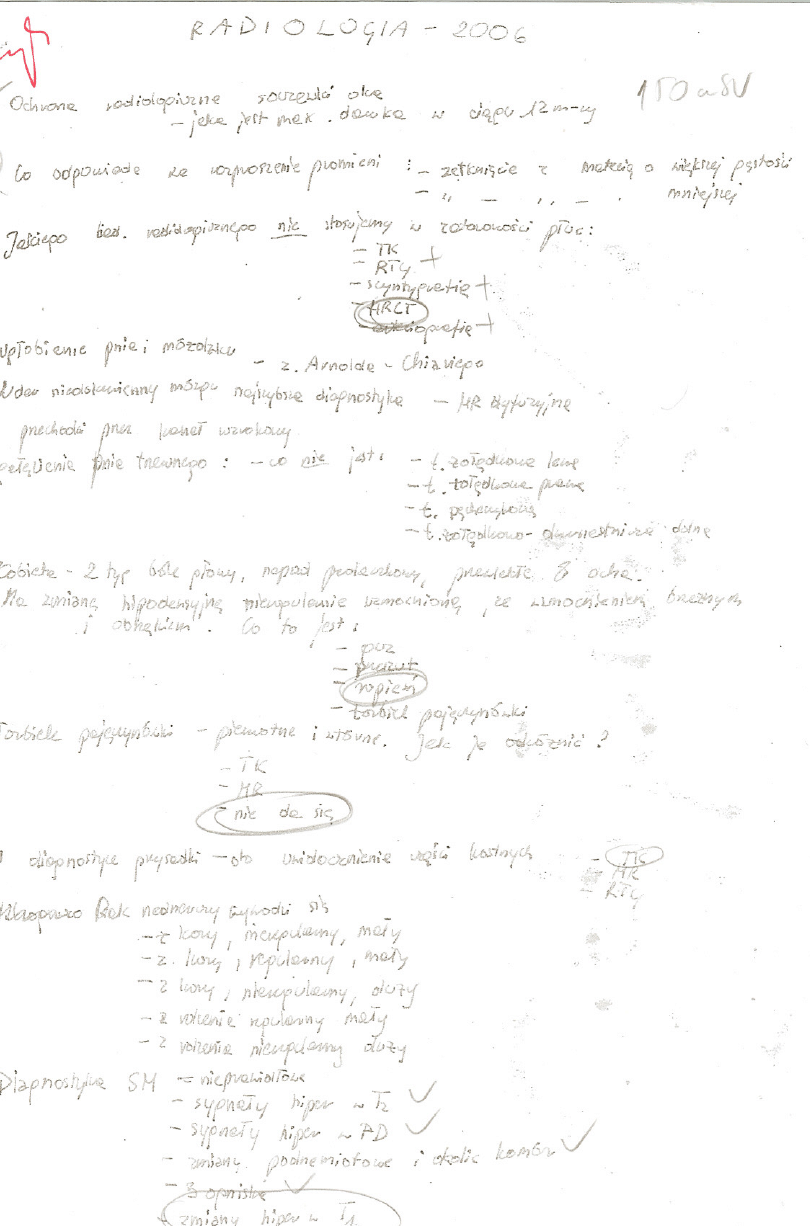 RADIOLOGIA - 2006
Ochrona radiologiczna soczewki oka 150 mSv
- jaka jest max. dawka w ciągu 12 m-cy
Co odpowiada za rozproszenie promieni : - zetknięcie z materią o większej gęstości
- " - " - mniejszej
Jakiego bad. radiologicznego nie stosujemy w zatorowości płuc:
- TK
- RTG +
- scyntygrafia +
- HRCT
- angiografia +
wgłobienie pnia i móżdżku - z. Arnolda - Chiariego
Udar niedokrwienny mózgu najszybsza diagnostyka - MR dyfuzyjne
przechodzi przez kanał wzrokowy
pnia trzewnego : - co nie jest:
- t. żołądkowa lewa
- t. żołądkowa prawa
- t.
- t. żołądkowo- dwunastnicza dolna
Kobieta - 2 tyg bóle głowy, napad padaczkowy, 8 ocha.
Ma zmianę hipodensyjną nieregularnie wzmocnioną, ze wzmocnieniem brzeżnym
i obrzękiem. Co to jest:
- guz
- przerzut
- ropień
- torbiel pajęczynówki
Torbiele pajęczynówki - pierwotne i wtórne. Jak je odróżnić?
- TK
- MR
- nie da się
W diagnostyce przysadki - do uwidocznienia części kostnych
- TK
- MR
- RTG
Rak nadnerczy wywodzi się
- z kory, nieregularny, mały
- z kory, regularny, mały
- z kory, nieregularny, duży
- z rdzenia regularny mały
- z rdzenia nieregularny duży
Diagnostyka SM = nieprawidłowe
- sygnały hiper w T2 ✓
- sygnały hiper w PD ✓
- zmiany podnamiotowe i okolic komór ✓
- 3 ogniska ✓
- zmiany hiper w T1